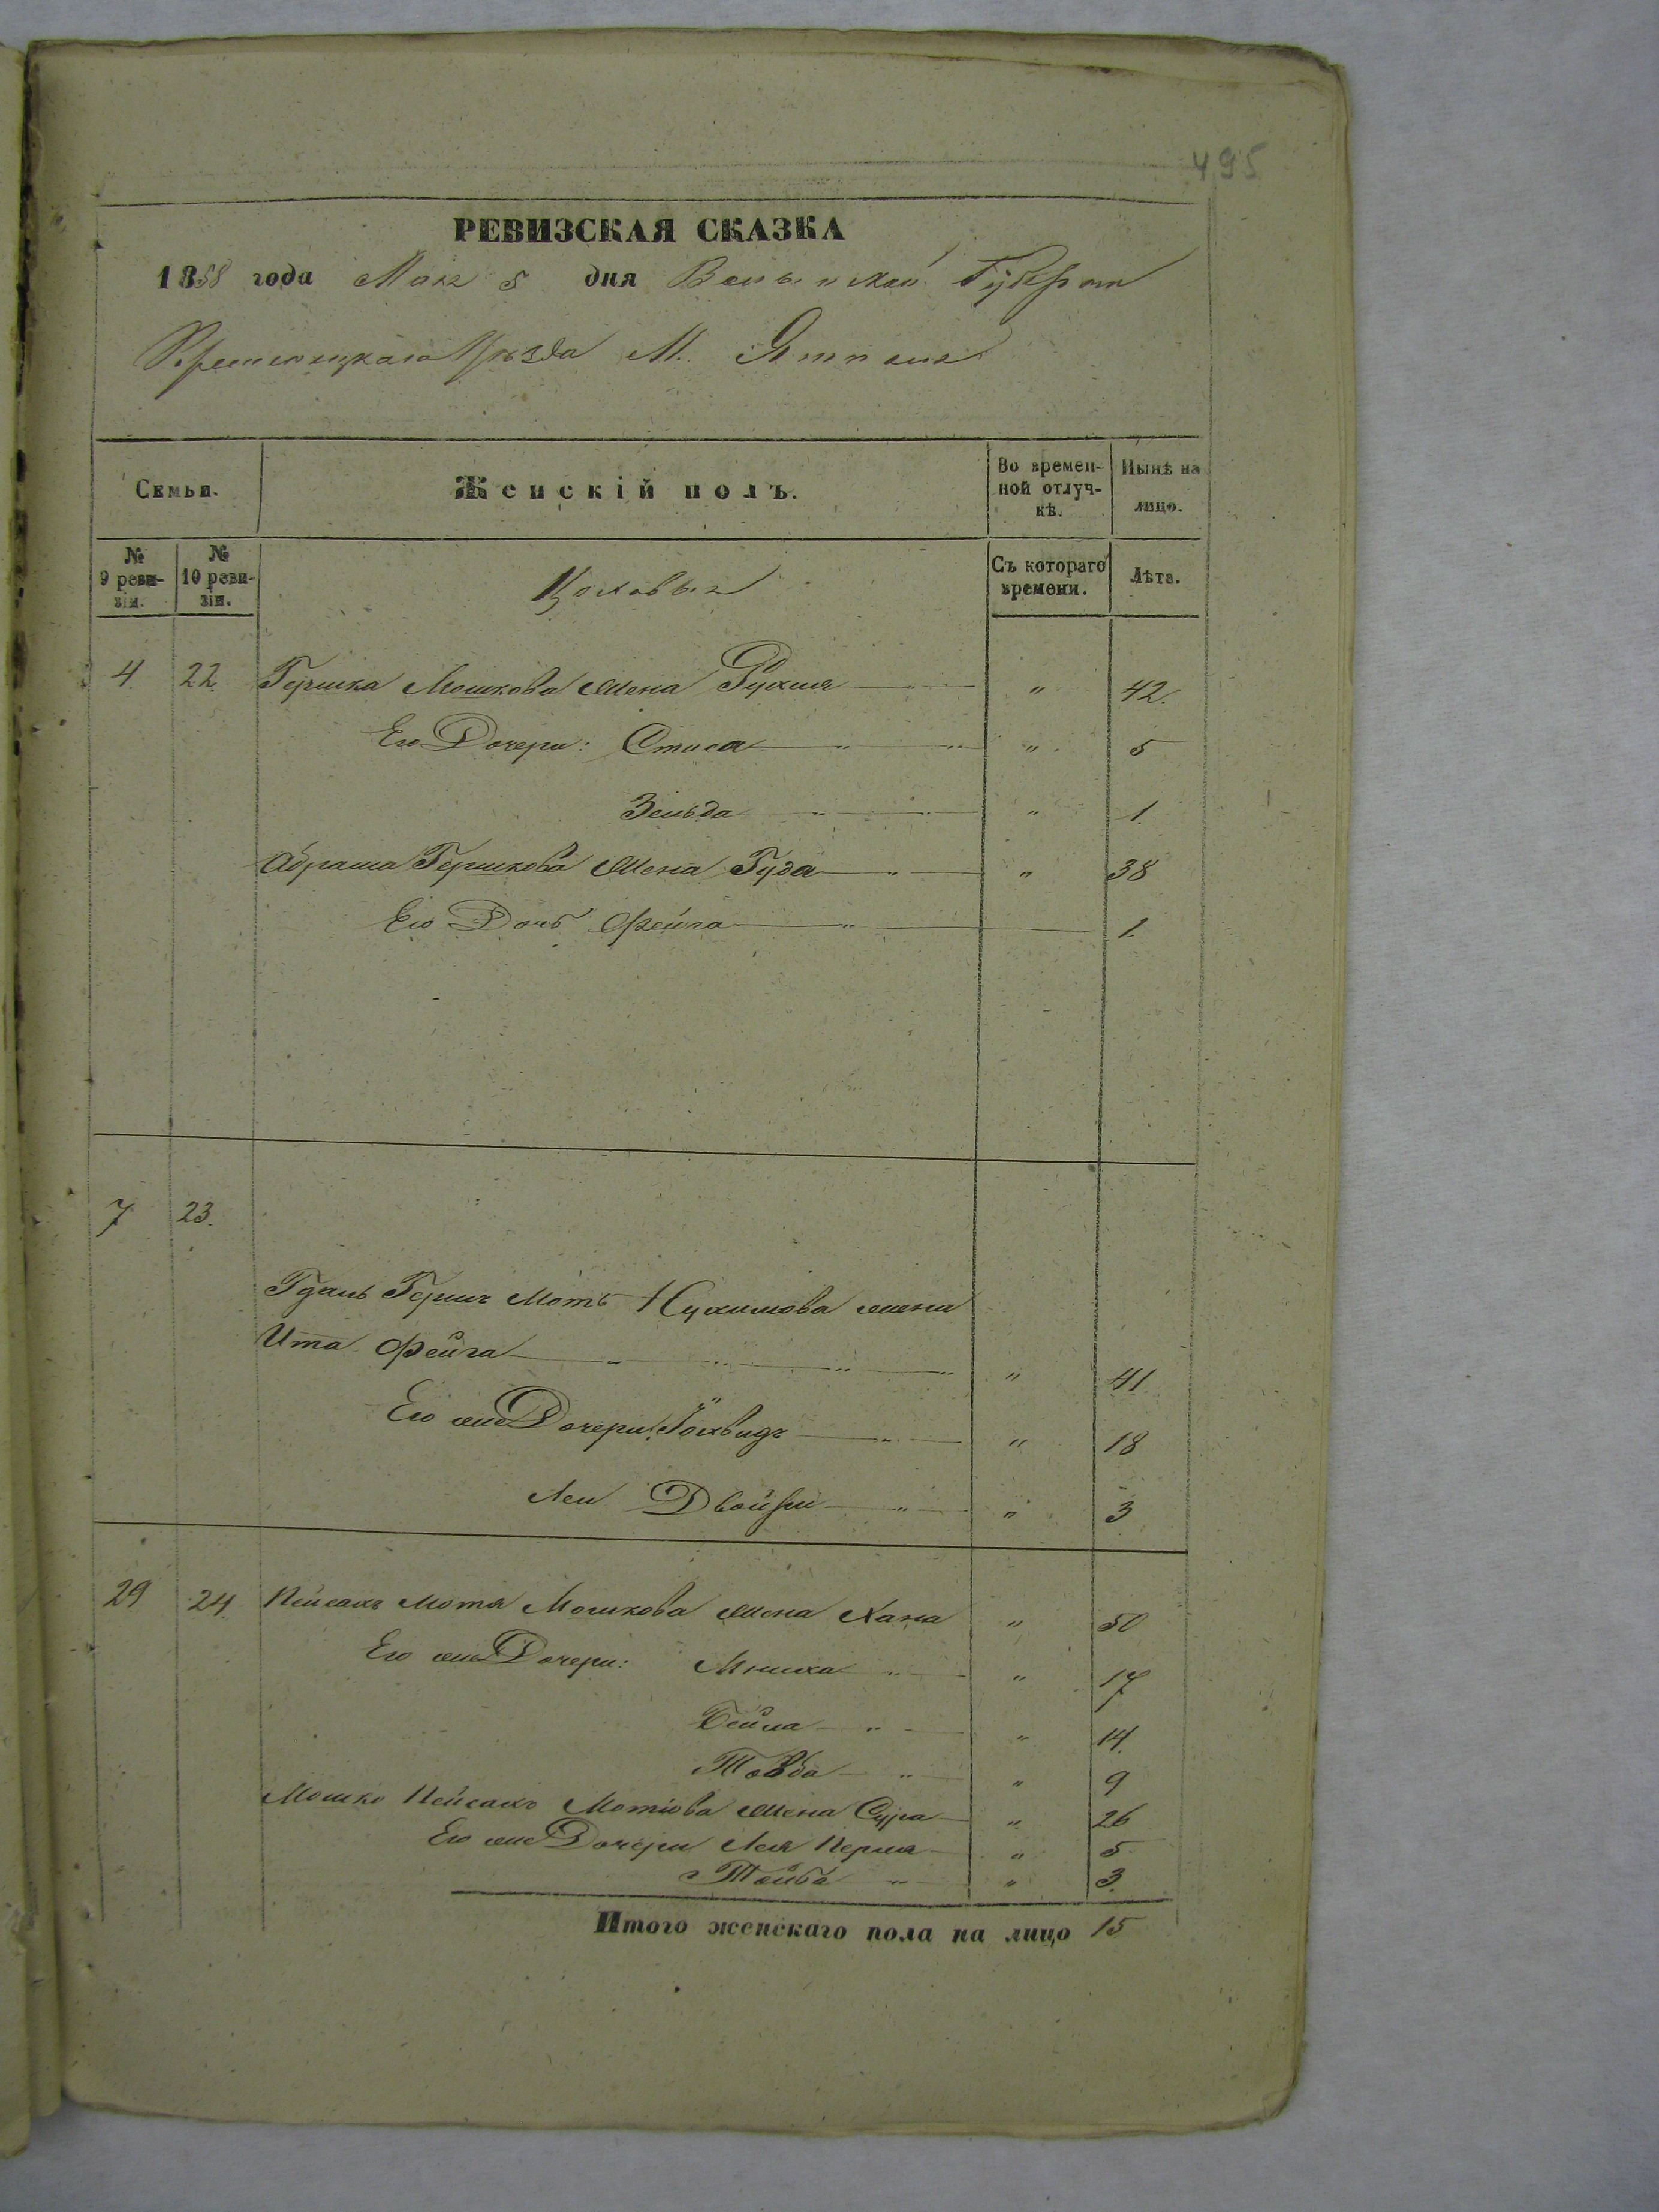 495
РЕВИЗСКАЯ СКАЗКА
1858 года Мая 5 дня Волынской Губернии
Кременецкаго Уезда М. Ямполя
Семьи. Женскій полъ. Во времен- Нынѣ на
ной отлуч- лицо.
кѣ.
№ № Съ котораго Лѣта.
9 реви- 10 реви- времени.
зіи. зіи.
4 22 Гершка Мошкова жена Рухля " 42.
Его Дочери: Стиса " 5
Зельда " 1
Абрама Гершкова жена Гуда " 38
Его Дочь Фейга 1
7 23.
Герш Моть Нухимова жена
Ита Фейга " 41
Его же Дочери: " 18
Леи Двойри " 3
29 24 Пейсахъ Мотя Мошкова жена Хана " 50
Его же Дочери: " 17
Бейла " 14
" 9
Мошко Пейсахъ Мотіова жена Сура " 26
Его же Дочери Лея Перля " 5
Тойба " 3
Итого женскаго пола на лицо 15